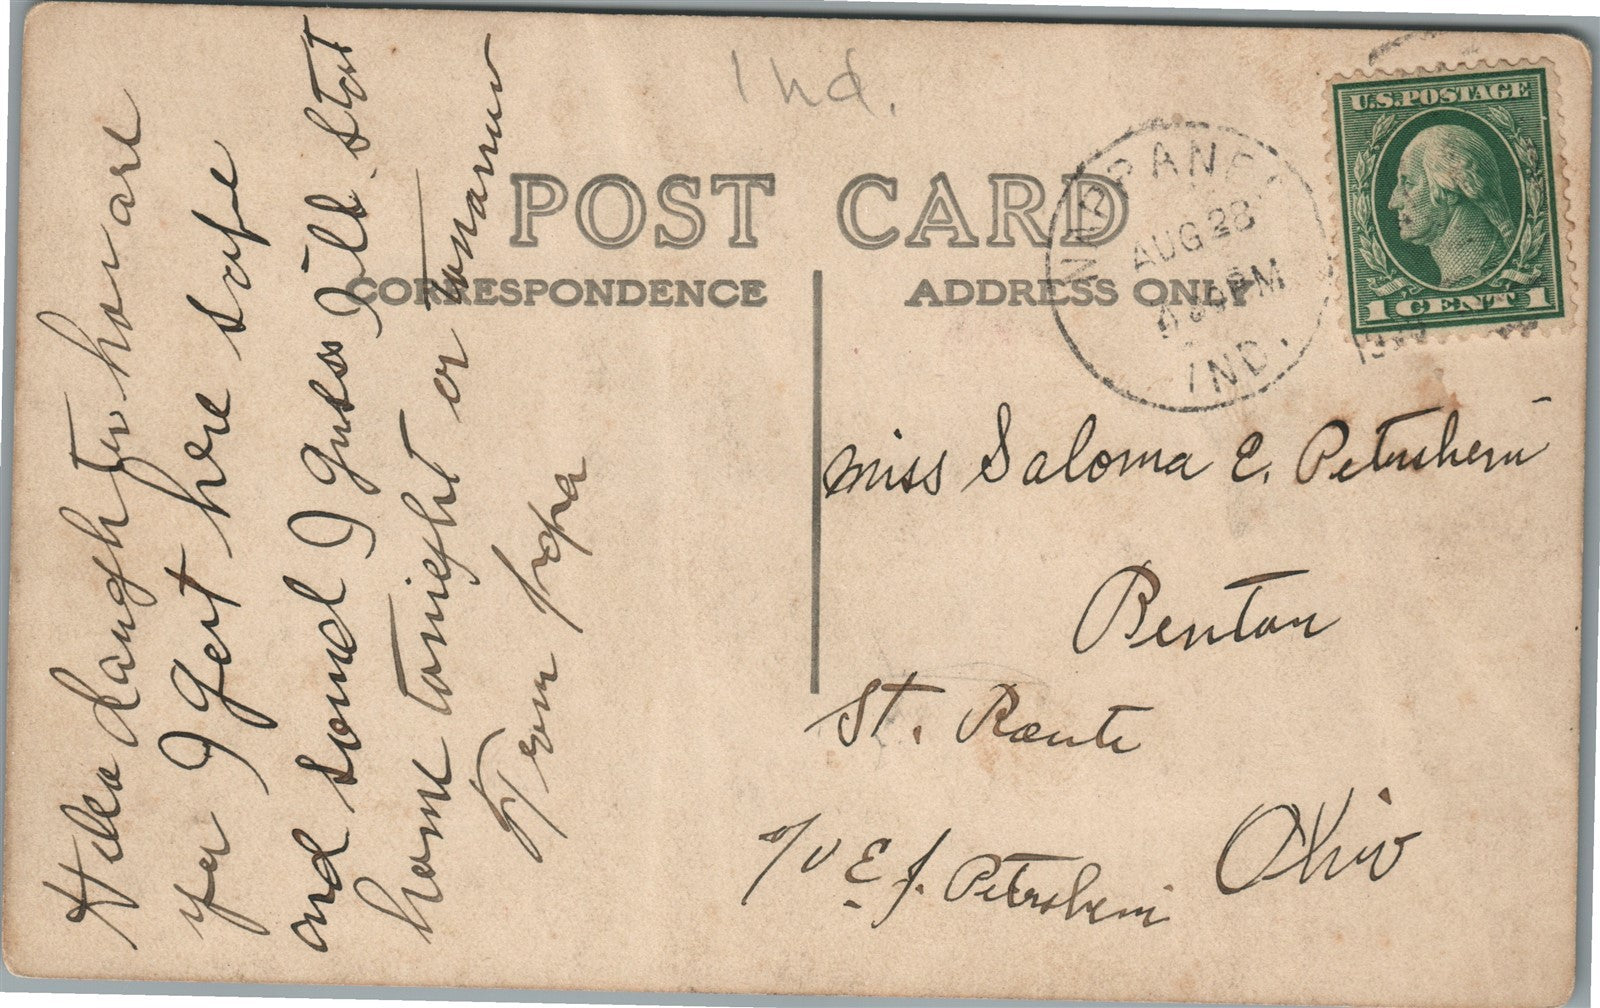 Ind.
POST CARD
CORRESPONDENCE
ADDRESS ONLY
NAPPANEE
AUG 28
PM
IND.
U.S. POSTAGE
1 CENT 1
Hello daughter how are
yer I gert here safe
and sound I guess I'll start
home tonight or tomarrow
From papa
Miss Saloma E. Petersheim
Benton
St. Route
Ohio
c/o E. J. Petersheim